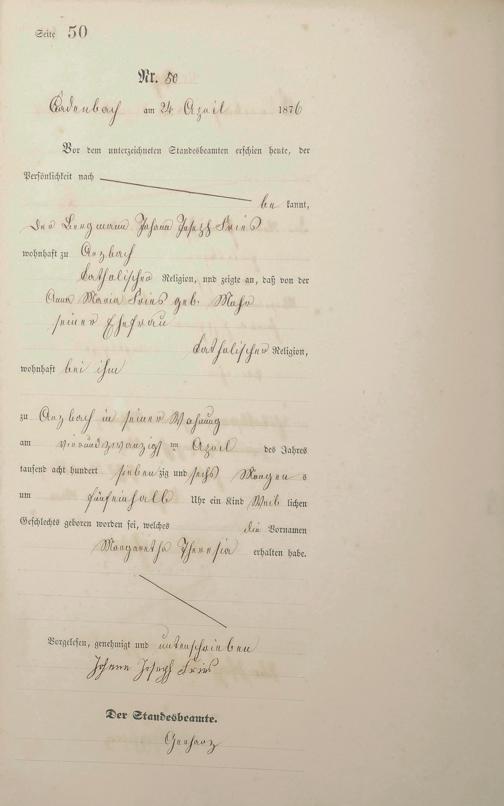 Seite 50
Nr. 50
Cadenbach am 24 April 1876
Vor dem unterzeichneten Standesbeamten erschien heute, der
Persönlichkeit nach
be kannt,
der Bergmann Johann Joseph Fries
wohnhaft zu Arzbach
katholischer Religion, und zeigte an, daß von der
Anna Maria Fries geb. Mohr
seiner Ehefrau
katholischer Religion,
wohnhaft bei ihm
zu Arzbach in seiner Wohnung
am vierundzwanzigsten April des Jahres
tausend acht hundert siebenzig und sechs Morgens
um fünfeinhalb Uhr ein Kind Weiblichen
Geschlechts geboren worden sei, welches die Vornamen
Margaretha Theresia erhalten habe.
Vorgelesen, genehmigt und unterschrieben
Johann Joseph Fries
Der Standesbeamte.